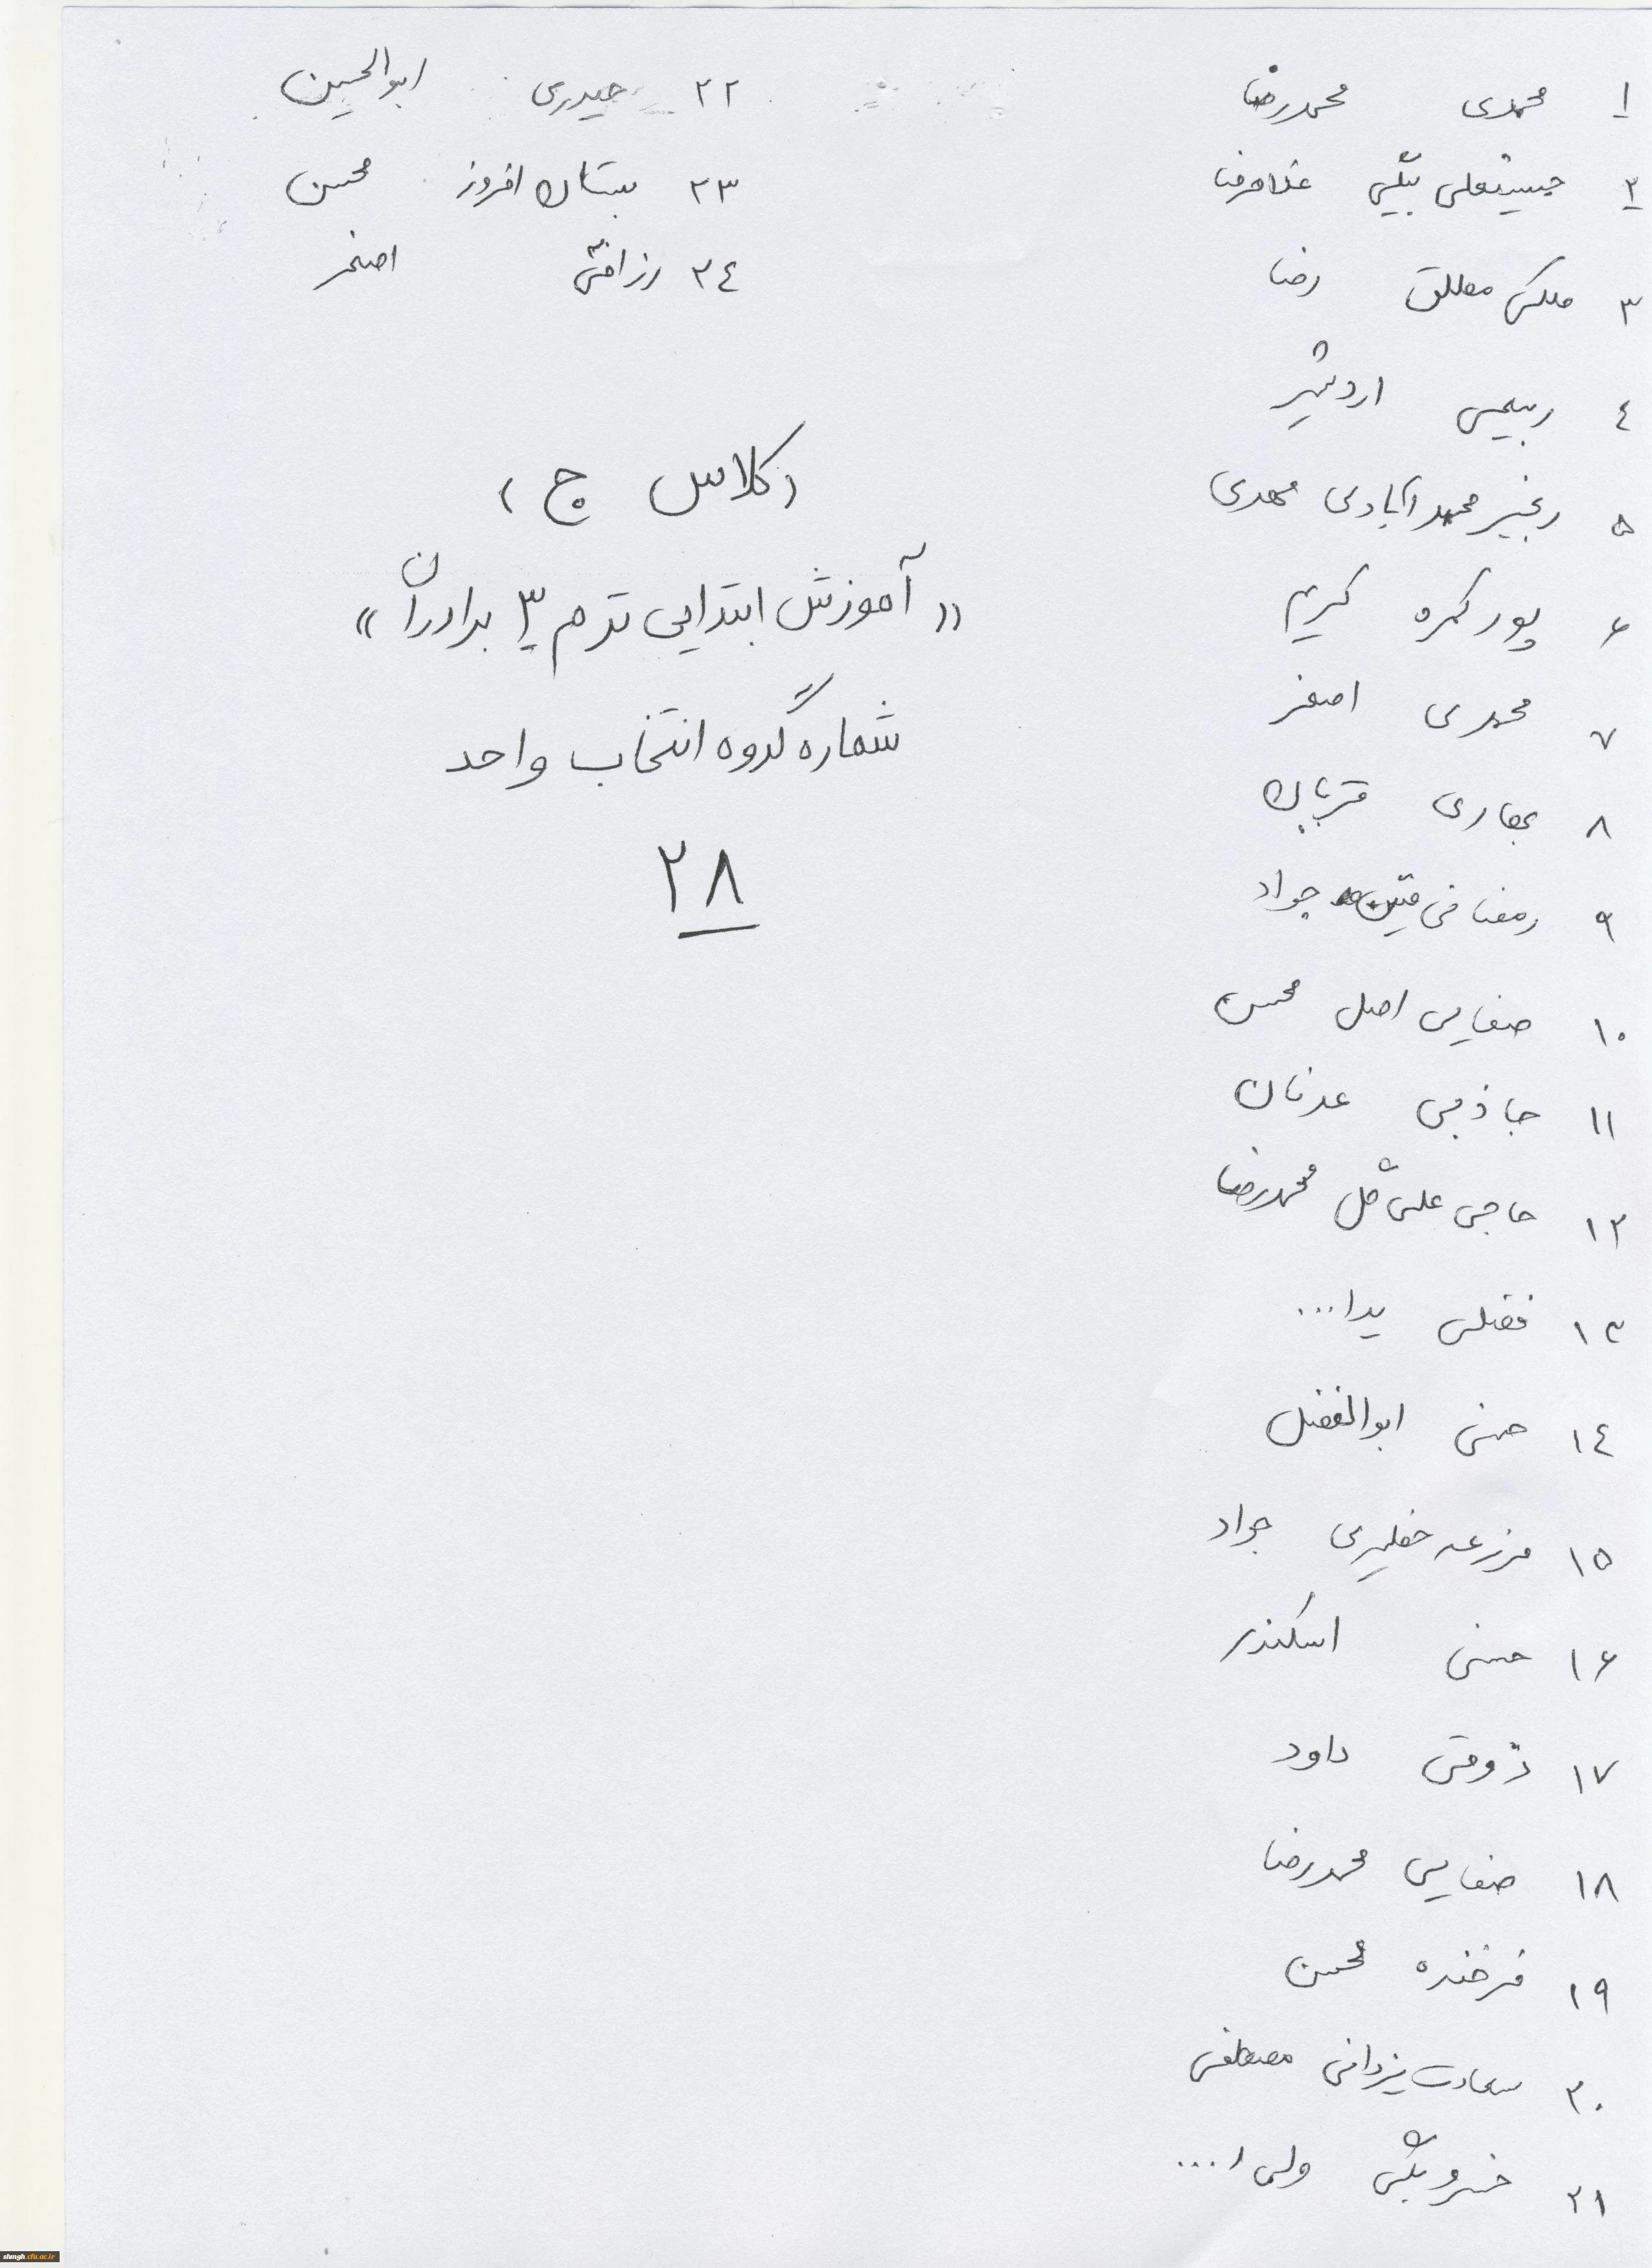 ۱ محمدی محمدرضا
۲ حسینقلی بیگی غلامرضا
۳ ملکی مطلق رضا
٤ ربیعی اردشیر
۵ رنجبر محمدآبادی مهدی
۶ پور کمره کریم
۷ محمدی اصغر
۸ قربان
۹ رمضانی متین جواد
۱۰ صفایی اصل محسن
۱۱ جاذبی عدنان
۱۲ حاجی علی گل محمدرضا
۱۳ فضلی یدا...
۱٤ حسنی ابوالفضل
۱۵ مزرعه خطیری جواد
۱۶ حسنی اسکندر
۱۷ ذوقی داود
۱۸ صفایی محمدرضا
۱۹ فرخنده محسن
۲۰ سعادت یزدانی مصطفی
۲۱ خسروبیگی ولی ا...
۲۲ حیدری ابوالحسین
۲۳ بستان افروز محسن
۲٤ رزاقی اصغر
(کلاس ج)
«آموزش ابتدایی ترم ۳ برادران»
شماره گروه انتخاب واحد
۲۸
shmgh.cfu.ac.ir